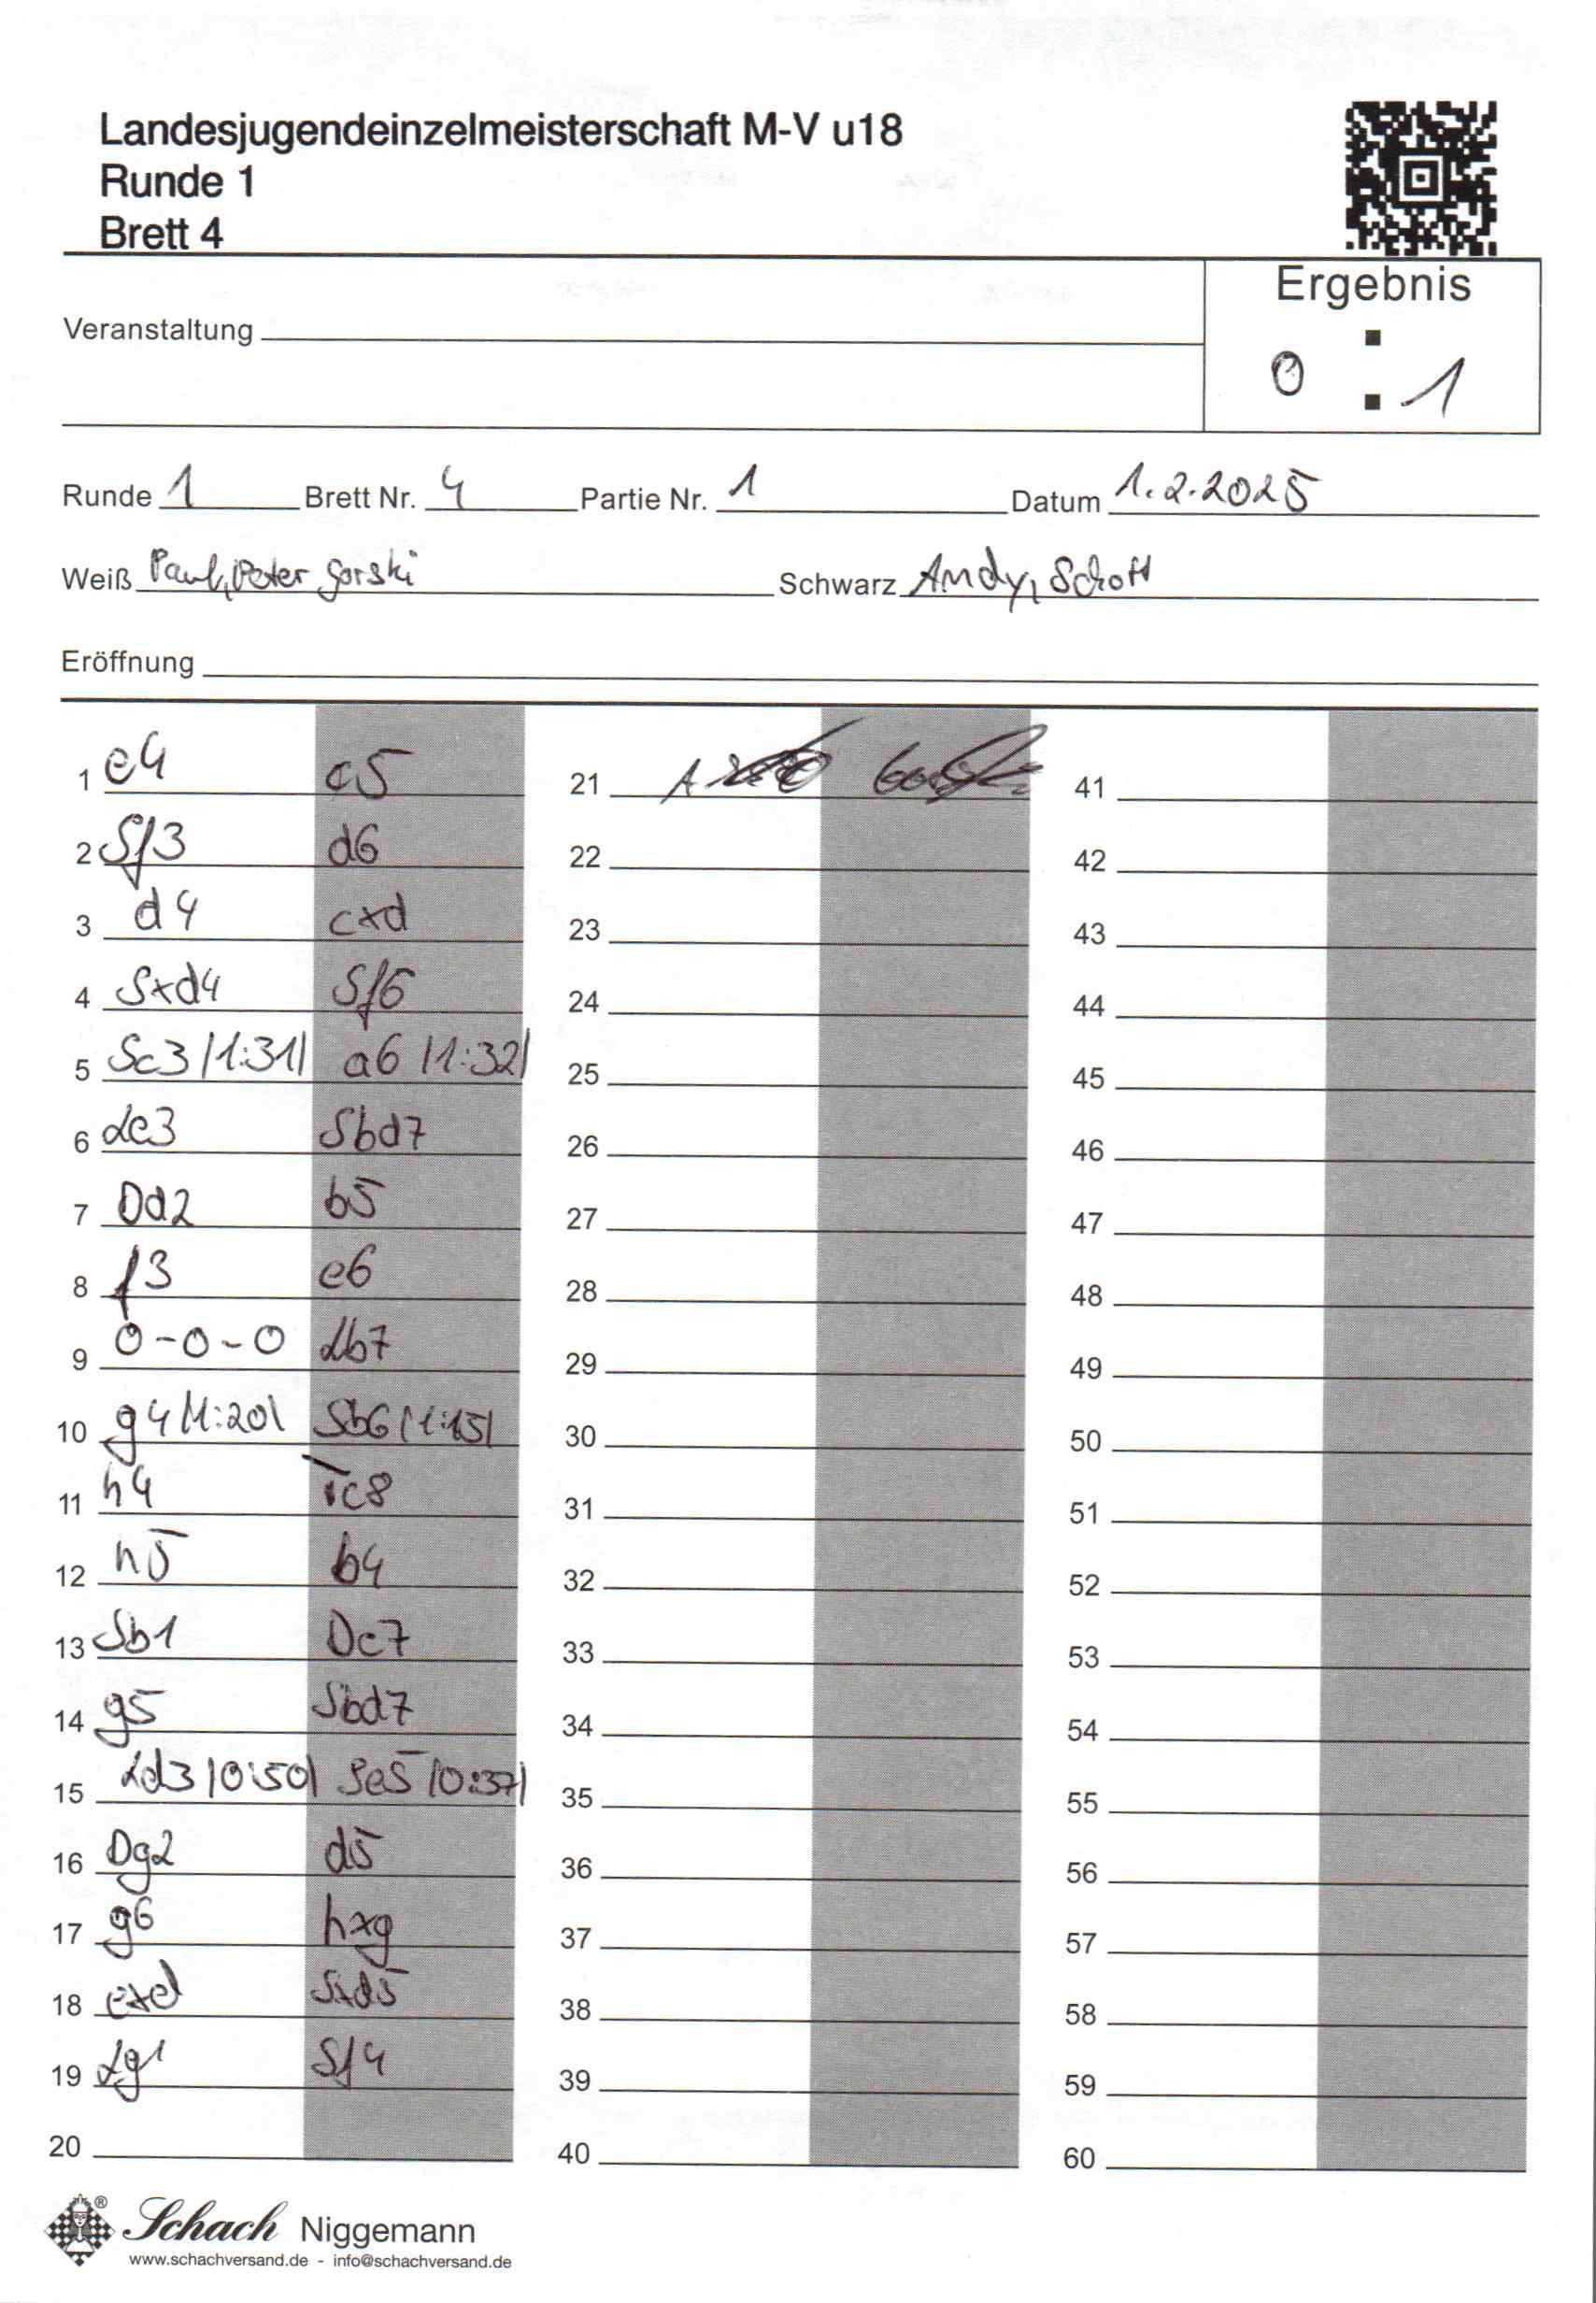 Landesjugendeinzelmeisterschaft M-V u18
Runde 1
Brett 4
Ergebnis
Veranstaltung
0 : 1
Runde 1 Brett Nr. 4 Partie Nr. 1 Datum 1.2.2025
Weiß Paul, Peter Gorski Schwarz Andy, Schott
Eröffnung
1 e4 c5 21 41
2 Sf3 d6 22 42
3 d4 cxd 23 43
4 Sxd4 Sf6 24 44
5 Sc3 |1:31| a6 |1:32| 25 45
6 Le3 Sbd7 26 46
7 Dd2 b5 27 47
8 f3 e6 28 48
9 0-0-0 Lb7 29 49
10 g4 |1:20| Sb6 (1:15| 30 50
11 h4 Tc8 31 51
12 h5 b4 32 52
13 Sb1 Dc7 33 53
14 g5 Sbd7 34 54
15 Ld3 |0:50| Se5 |0:37| 35 55
16 Dg2 d5 36 56
17 g6 hxg 37 57
18 exd Sxd5 38 58
19 Lg1 Sf4 39 59
20 40 60
® Schach Niggemann
www.schachversand.de - info@schachversand.de